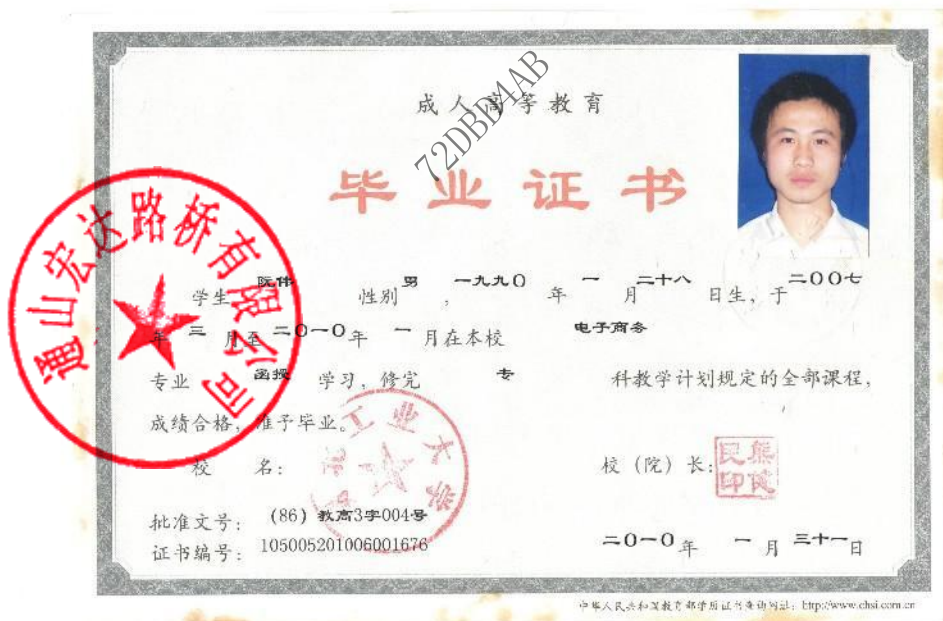 成人高等教育
72DBD4AB
毕业证书
通山宏达路桥有限公司
学生 阮伟 性别 男 ,一九九〇年 一 月 二十八 日生,于 二〇〇七
年 三 月至 二〇一〇 年 一 月在本校 电子商务
专业 函授 学习,修完 专 科教学计划规定的全部课程,
成绩合格,准予毕业。
校 名: 湖北工业大学
校(院)长: 熊健民印
批准文号: (86)教高3字004号
证书编号: 105005201006001676
二〇一〇年 一 月 三十一日
中华人民共和国教育部学历证书查询网址:http://www.chsi.com.cn